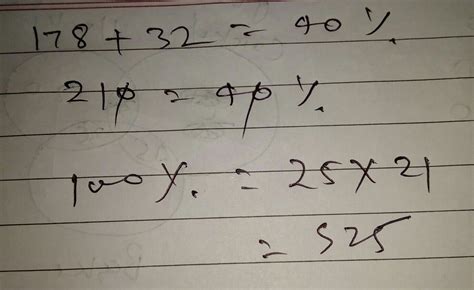 178 + 32 = 40 %.
210 = 40 %.
100 %. = 25 x 21
= 525